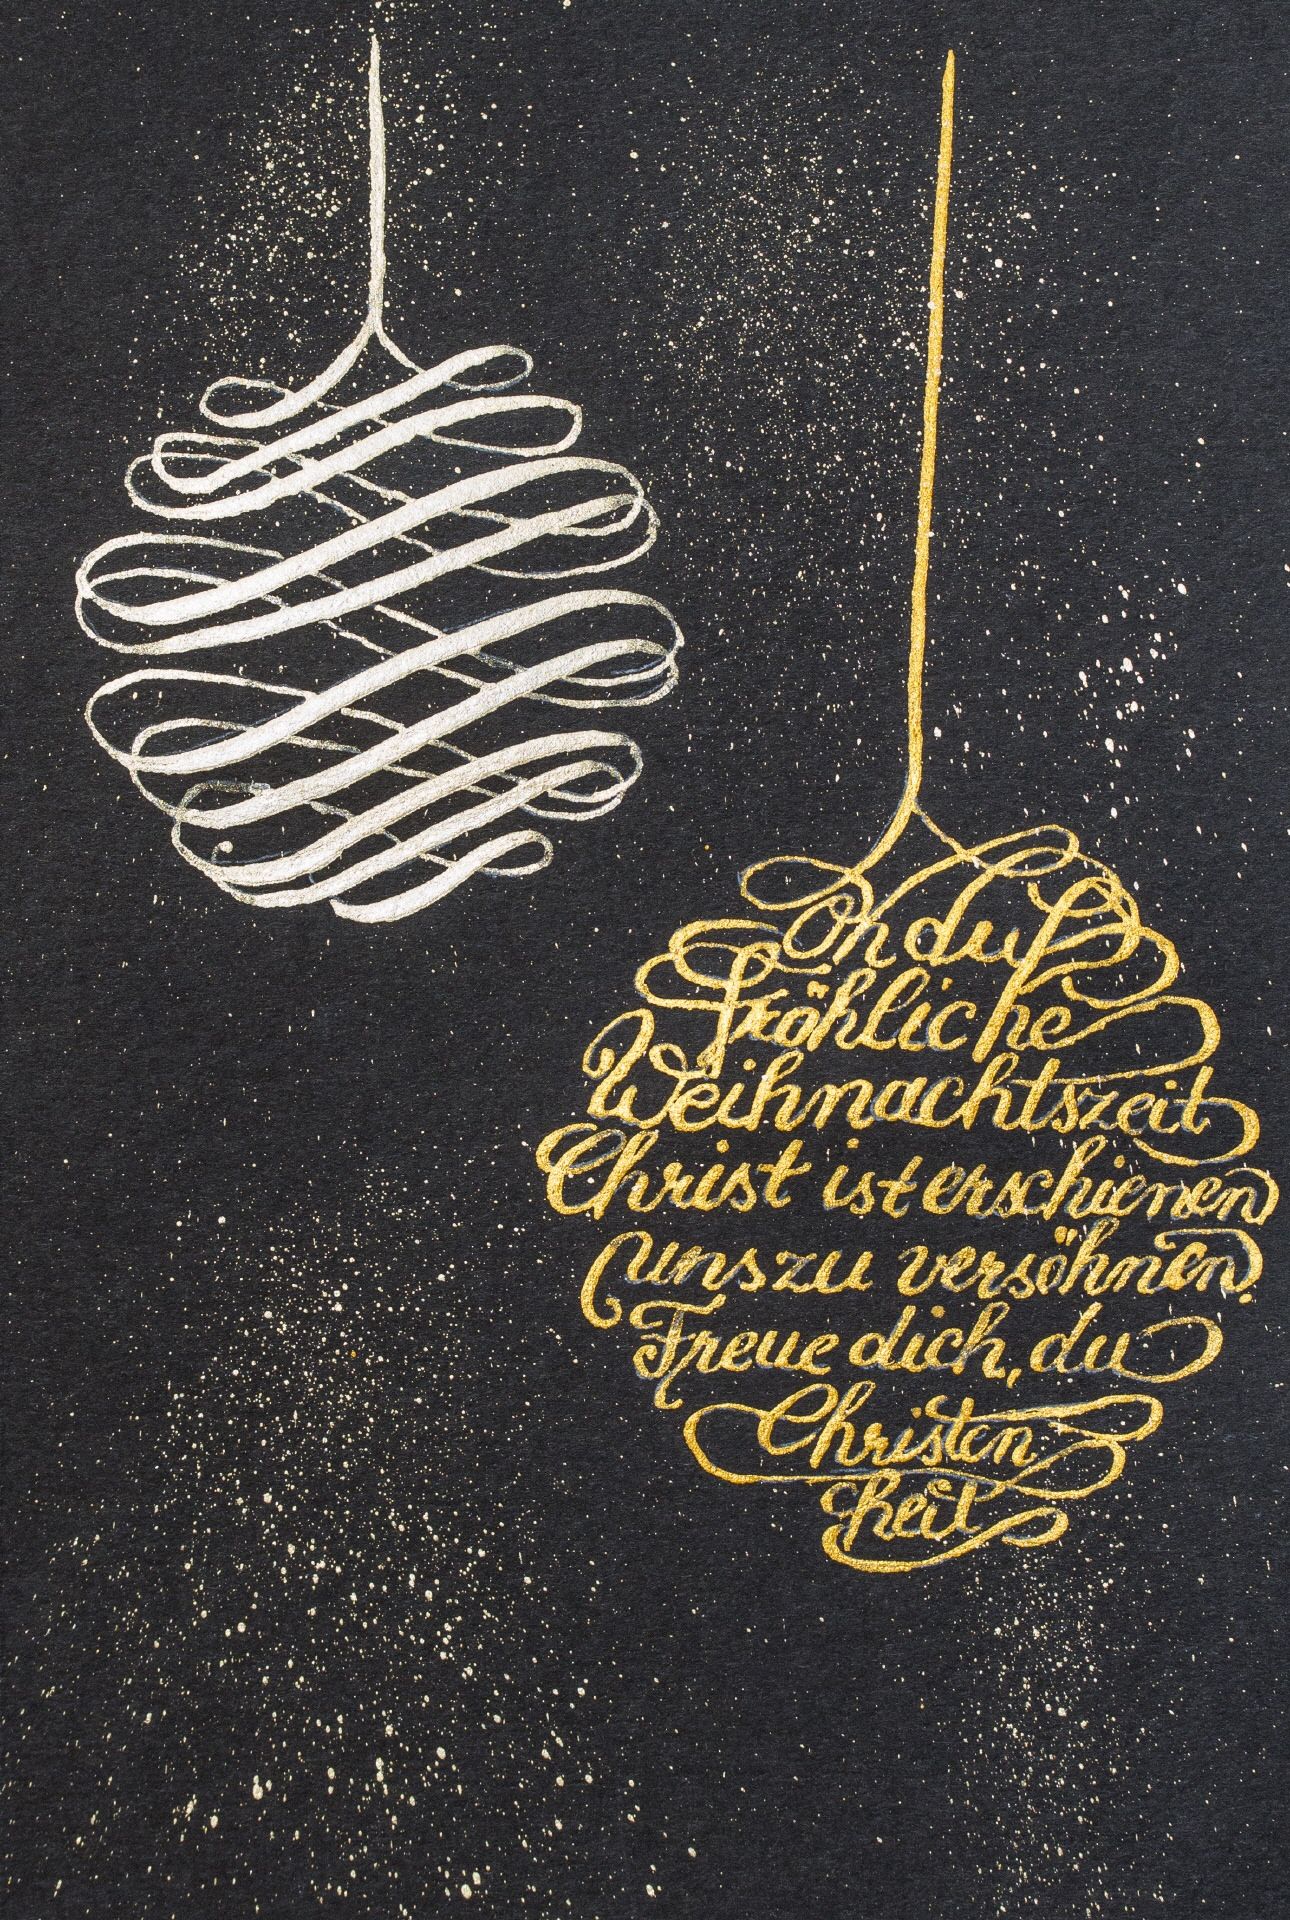 Oh du
fröhliche
Weihnachtszeit
Christ ist erschienen
uns zu versöhnen.
Freue dich, du
Christen
heit